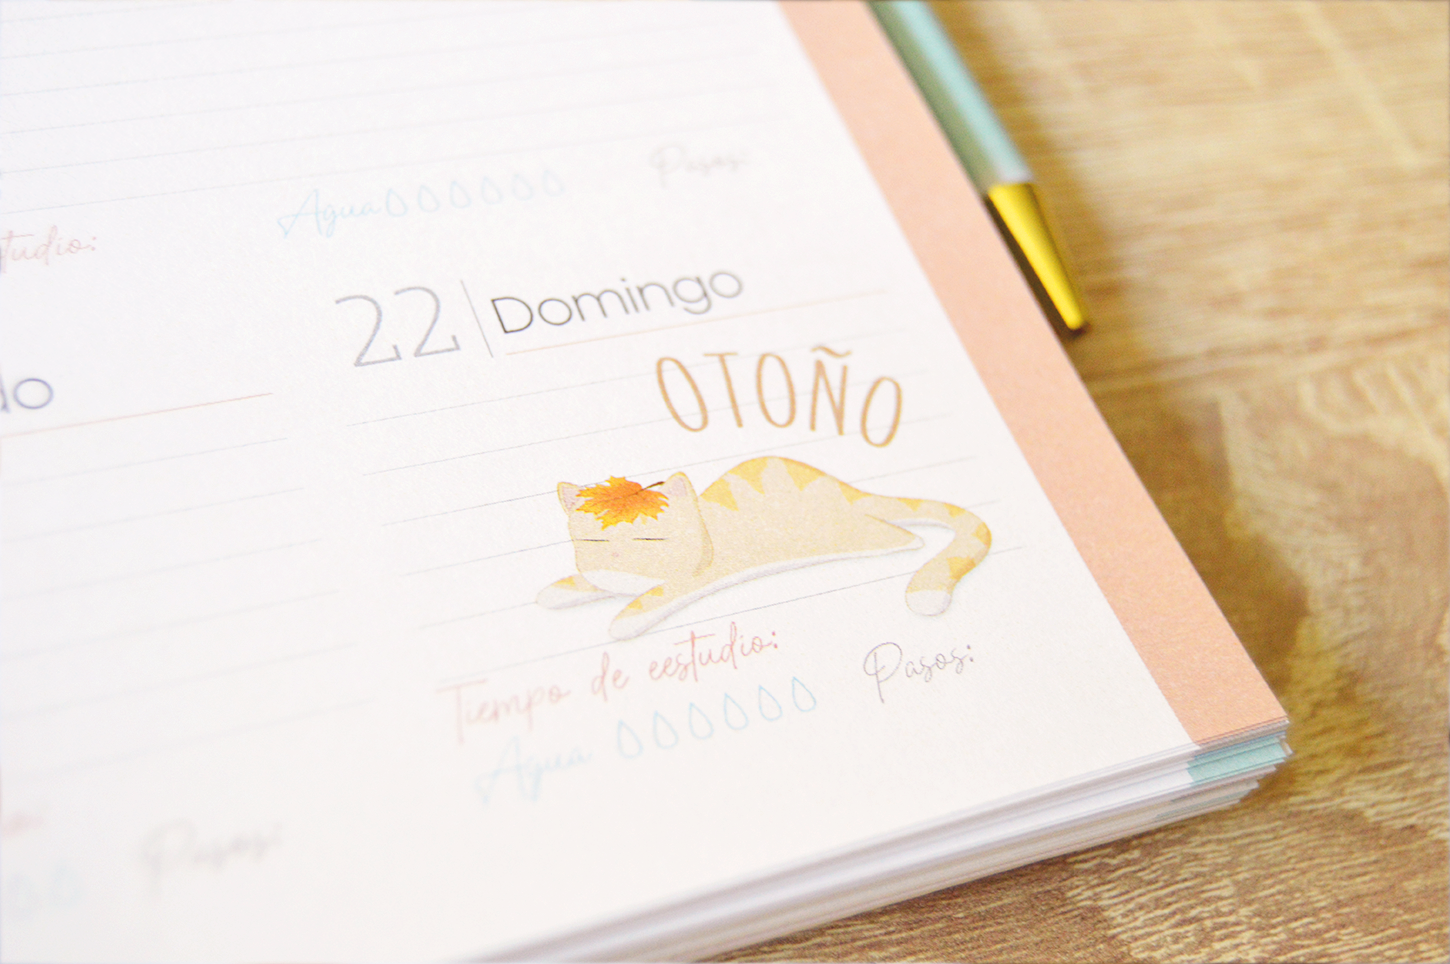 Agua
Pasos:
tudio:
22 Domingo
do
OTOÑO
Tiempo de eestudio:
Agua
Pasos:
Pasos: